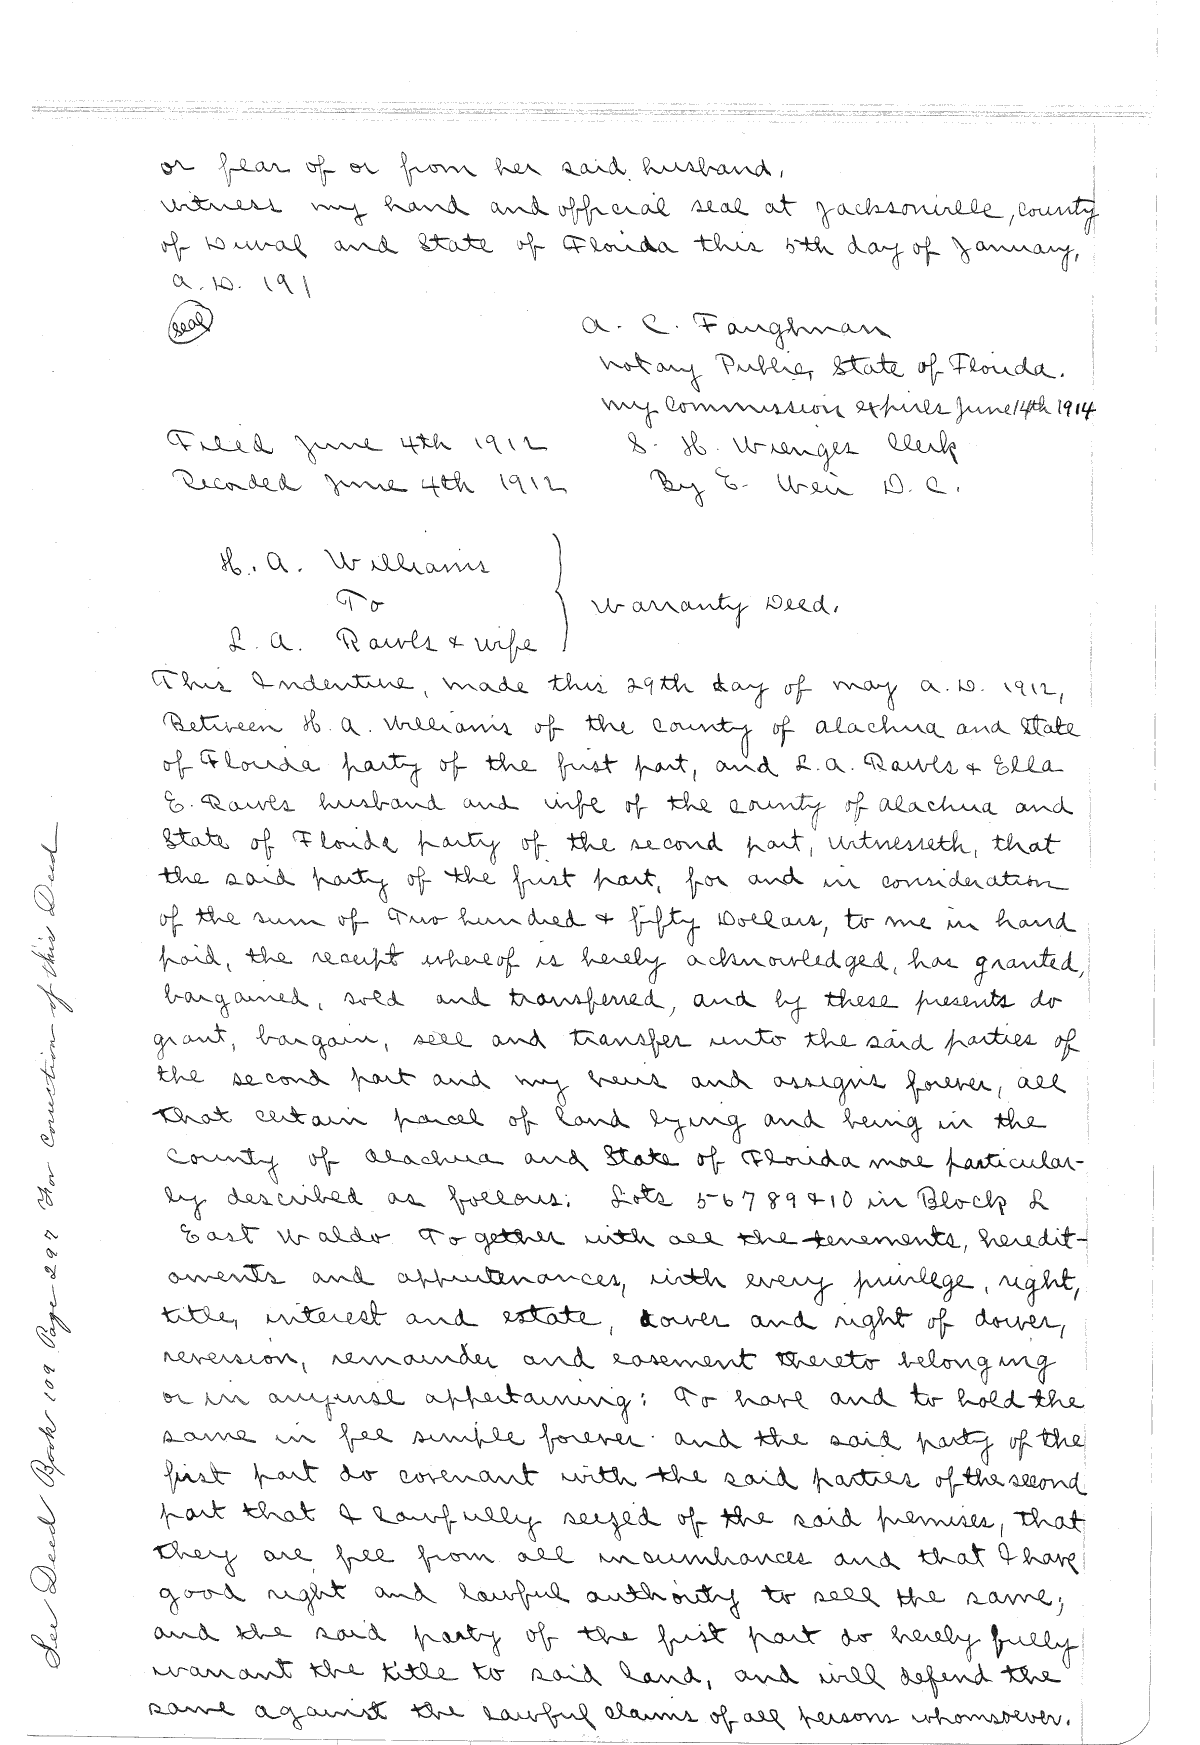 or fear of or from her said husband.
Witness my hand and official seal at Jacksonville, County
of Duval and State of Florida this 5th day of January,
A. D. 191
Seal
A. C. Faughman
Notary Public, State of Florida.
My Commission expires June 14th 1914
Filed June 4th 1912 S. H. Wienges Clerk
Recorded June 4th 1912 By E. Weir D. C.
H. A. Williams
To
Warranty Deed.
L. A. Rawls & wife
This Indenture, made this 29th day of May A. D. 1912,
Between H. A. Williams of the County of Alachua and State
of Florida party of the first part, and L. A. Rawls & Ella
E. Rawls husband and wife of the County of Alachua and
State of Florida party of the second part, Witnesseth, that
the said party of the first part, for and in consideration
of the sum of Two hundred & fifty Dollars, to me in hand
paid, the receipt whereof is hereby acknowledged, has granted,
bargained, sold and transferred, and by these presents do
grant, bargain, sell and transfer unto the said parties of
the second part and my heirs and assigns forever, all
that certain parcel of land lying and being in the
County of Alachua and State of Florida more particular-
ly described as follows: Lots 5 6 7 8 9 & 10 in Block L
East Waldo Together with all the tenements, heredit-
aments and appurtenances, with every privilege, right,
title, interest and estate, dower and right of dower,
reversion, remainder and easement thereto belonging
or in anywise appertaining: To have and to hold the
same in fee simple forever and the said party of the
first part do covenant with the said parties of the second
part that I lawfully seized of the said premises, that
they are free from all incumbrances and that I have
good right and lawful authority to sell the same;
and the said party of the first part do hereby fully
warrant the title to said land, and will defend the
same against the lawful claims of all persons whomsoever.
See Deed Book 109 Page 297 For Correction of this Deed